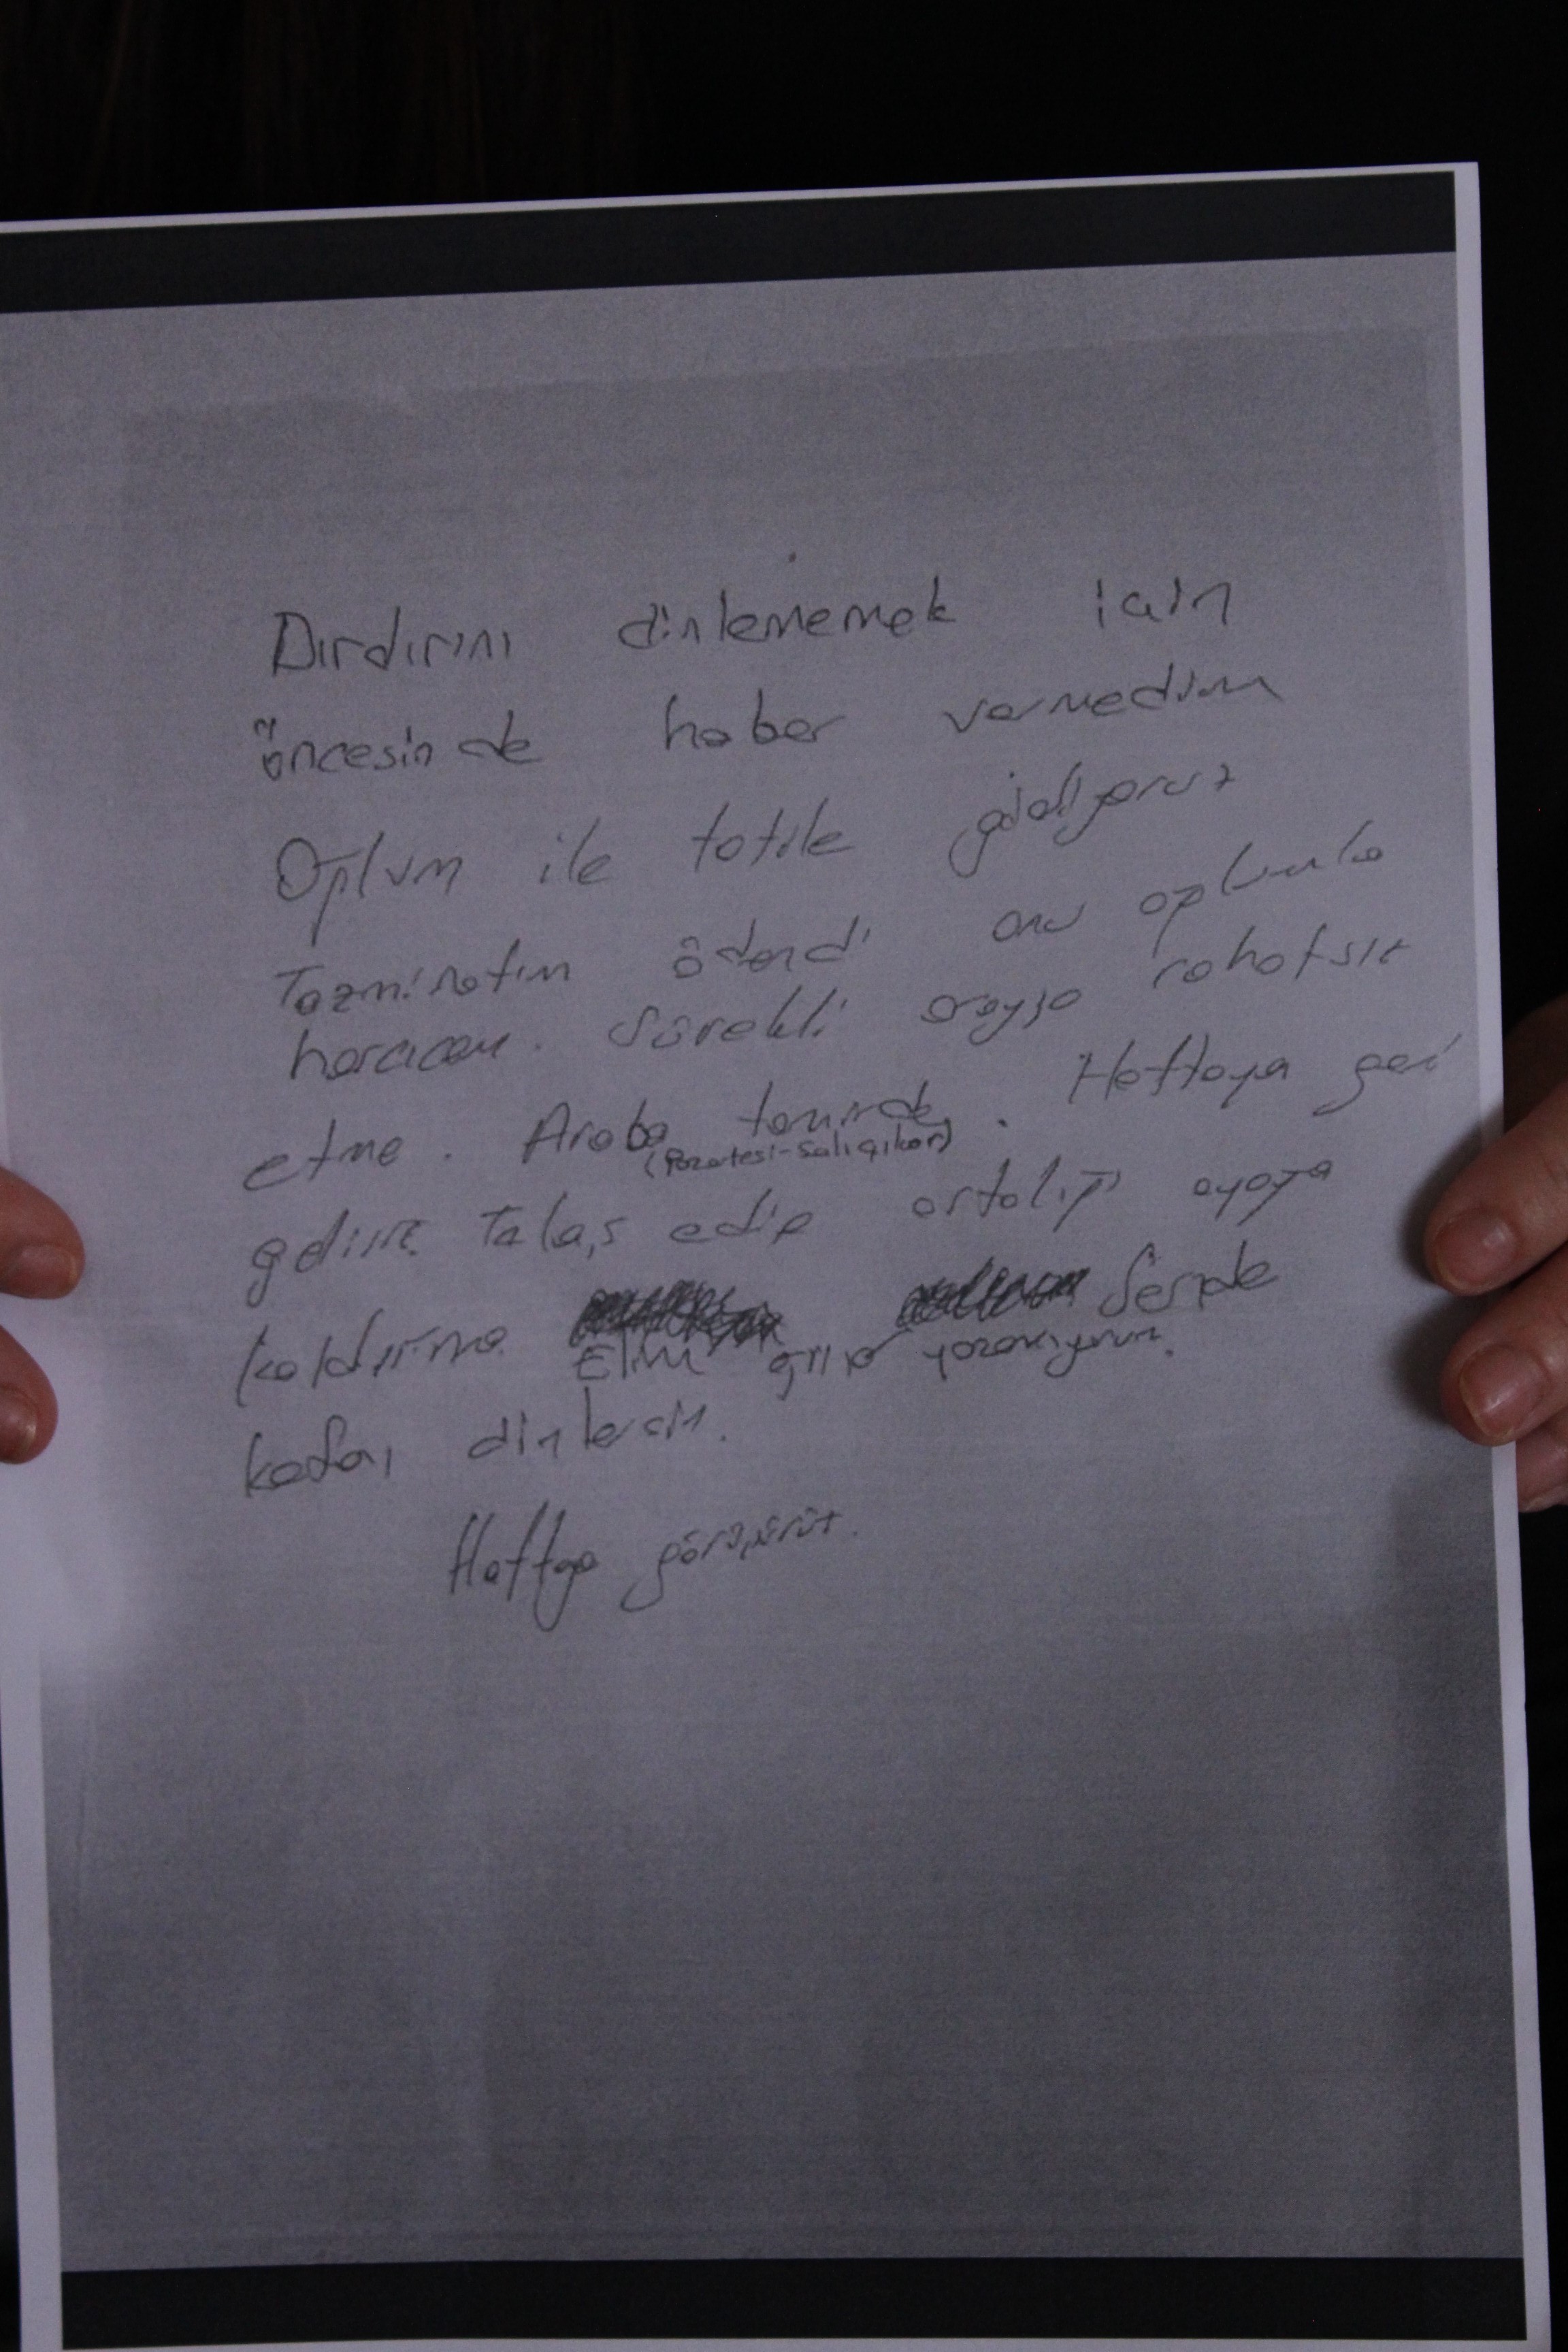 Dırdırını dinlememek için
öncesinde haber vermedim
Oğlum ile tatile gidiyoruz
Tazminatım ödendi onu oğlumla
harcıcam. Sürekli arayıp rahatsız
etme. Araba tamirde. Haftaya geri
(Pazartesi-Salı çıkar)
gelirız Telaş edip ortalığı ayağa
kaldırma. Sende
Elim ağrıyor yazamıyorum.
kafanı dinlersin.
Haftaya görüşürüz.